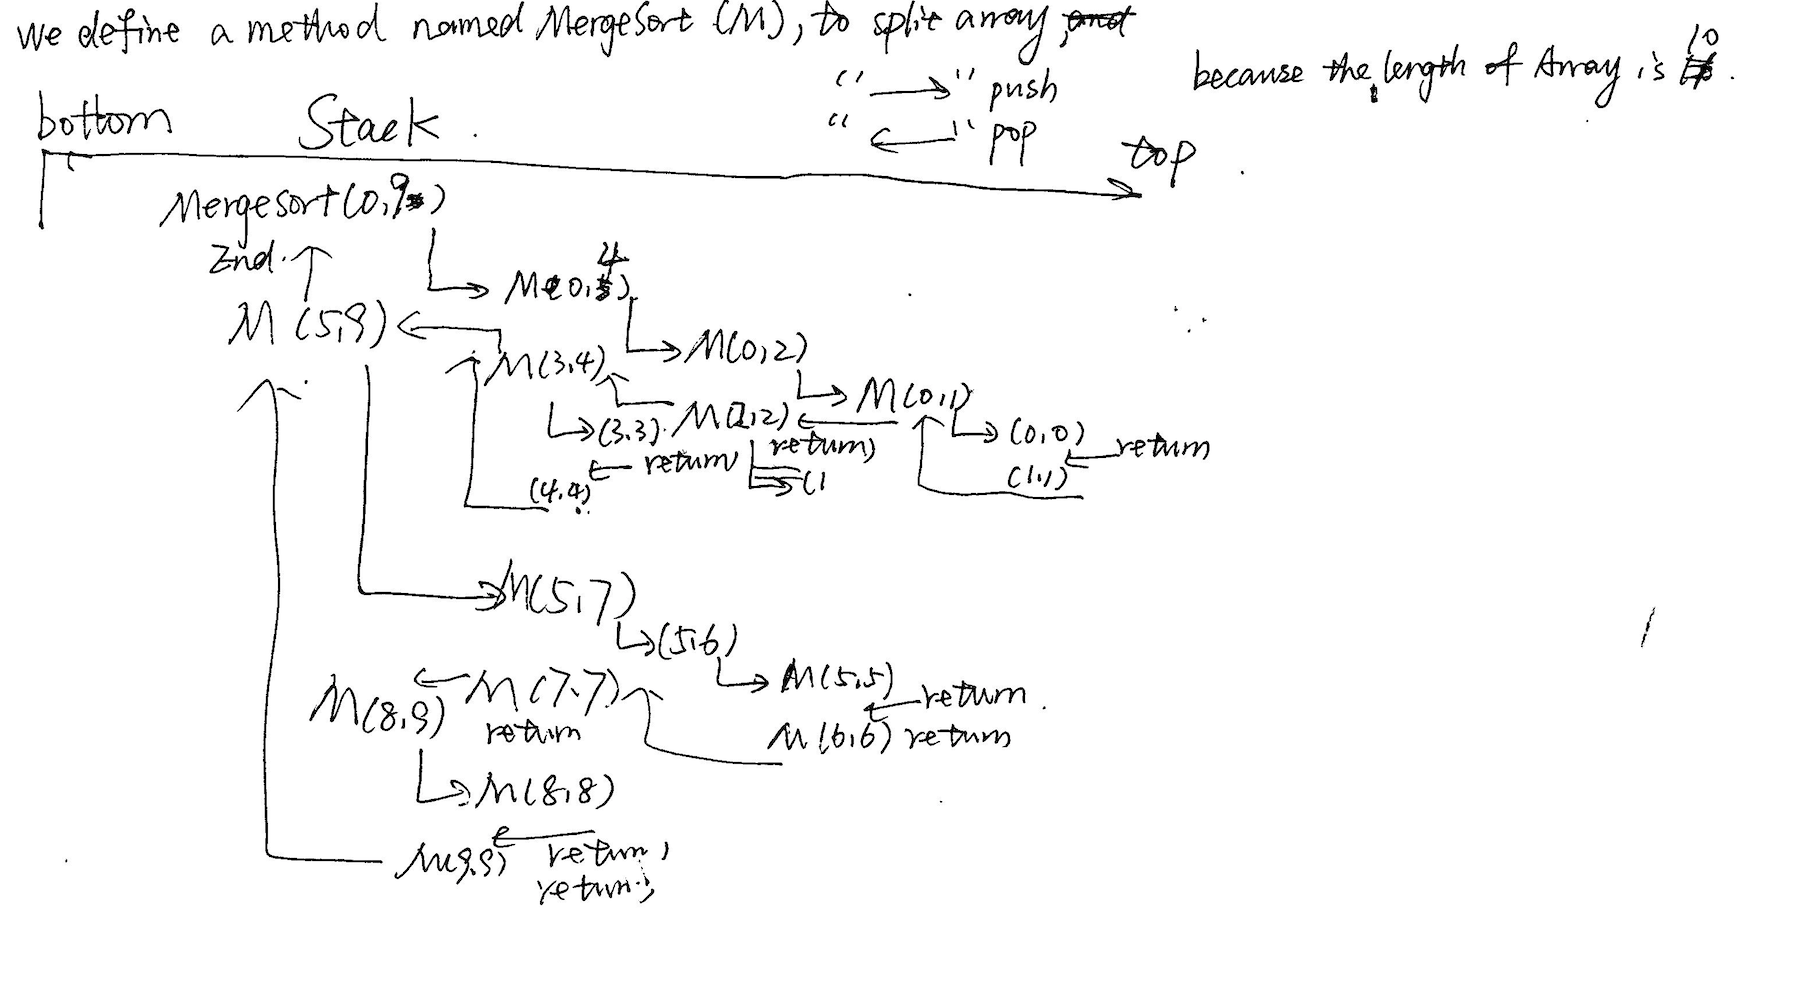 We define a method named MergeSort (M), to split array, and
because the length of Array is 10.
"→" push
"←" pop
bottom Stack. top
MergeSort(0,9)
End.
M(0,4)
M(5,9)
M(0,2)
M(3,4)
M(0,1)
(3,3). M(2,2) (0,0)
return return) return
(4,4) (1 (1,1)
M(5,7)
(5,6)
M(5,5)
M(8,9) M(7,7) return.
return M(6,6) return
M(8,8)
M(9,9) return,
return;